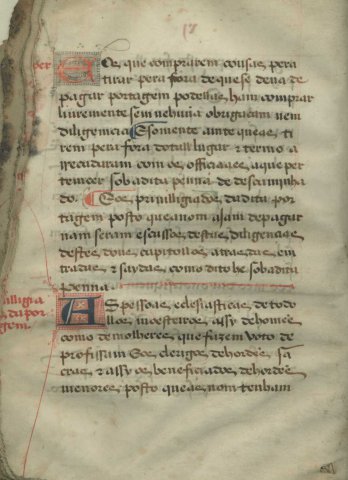 17
Os que comprarem cousas pera
tirar pera fora de que se deua de
pagar portagem podellas ham comprar
liuremente sem nehũa obrigaçam nem
diligencia Somente ante que as ti
rem pera fora do tall lugar e termo a
rrecadaram com os officiaees a que per
tencer sob a dita penna de descaminha
do. E os priuilligiados da dita por
tagem posto que a nom ajam de pagar
nam seram escussos destas diligencias
destes dous capitollos atras das em
tradas e saydas como dito he sob a dita
penna
illigia
da por
gem
As pessoas eclesiasticas de todos
llos moesteiros assy de homẽs
como de molheres que fazem voto de
profissam E os clerigos de hordẽs sa
cras e assy os beneficiados de hordẽs
menores posto que as nom tenham